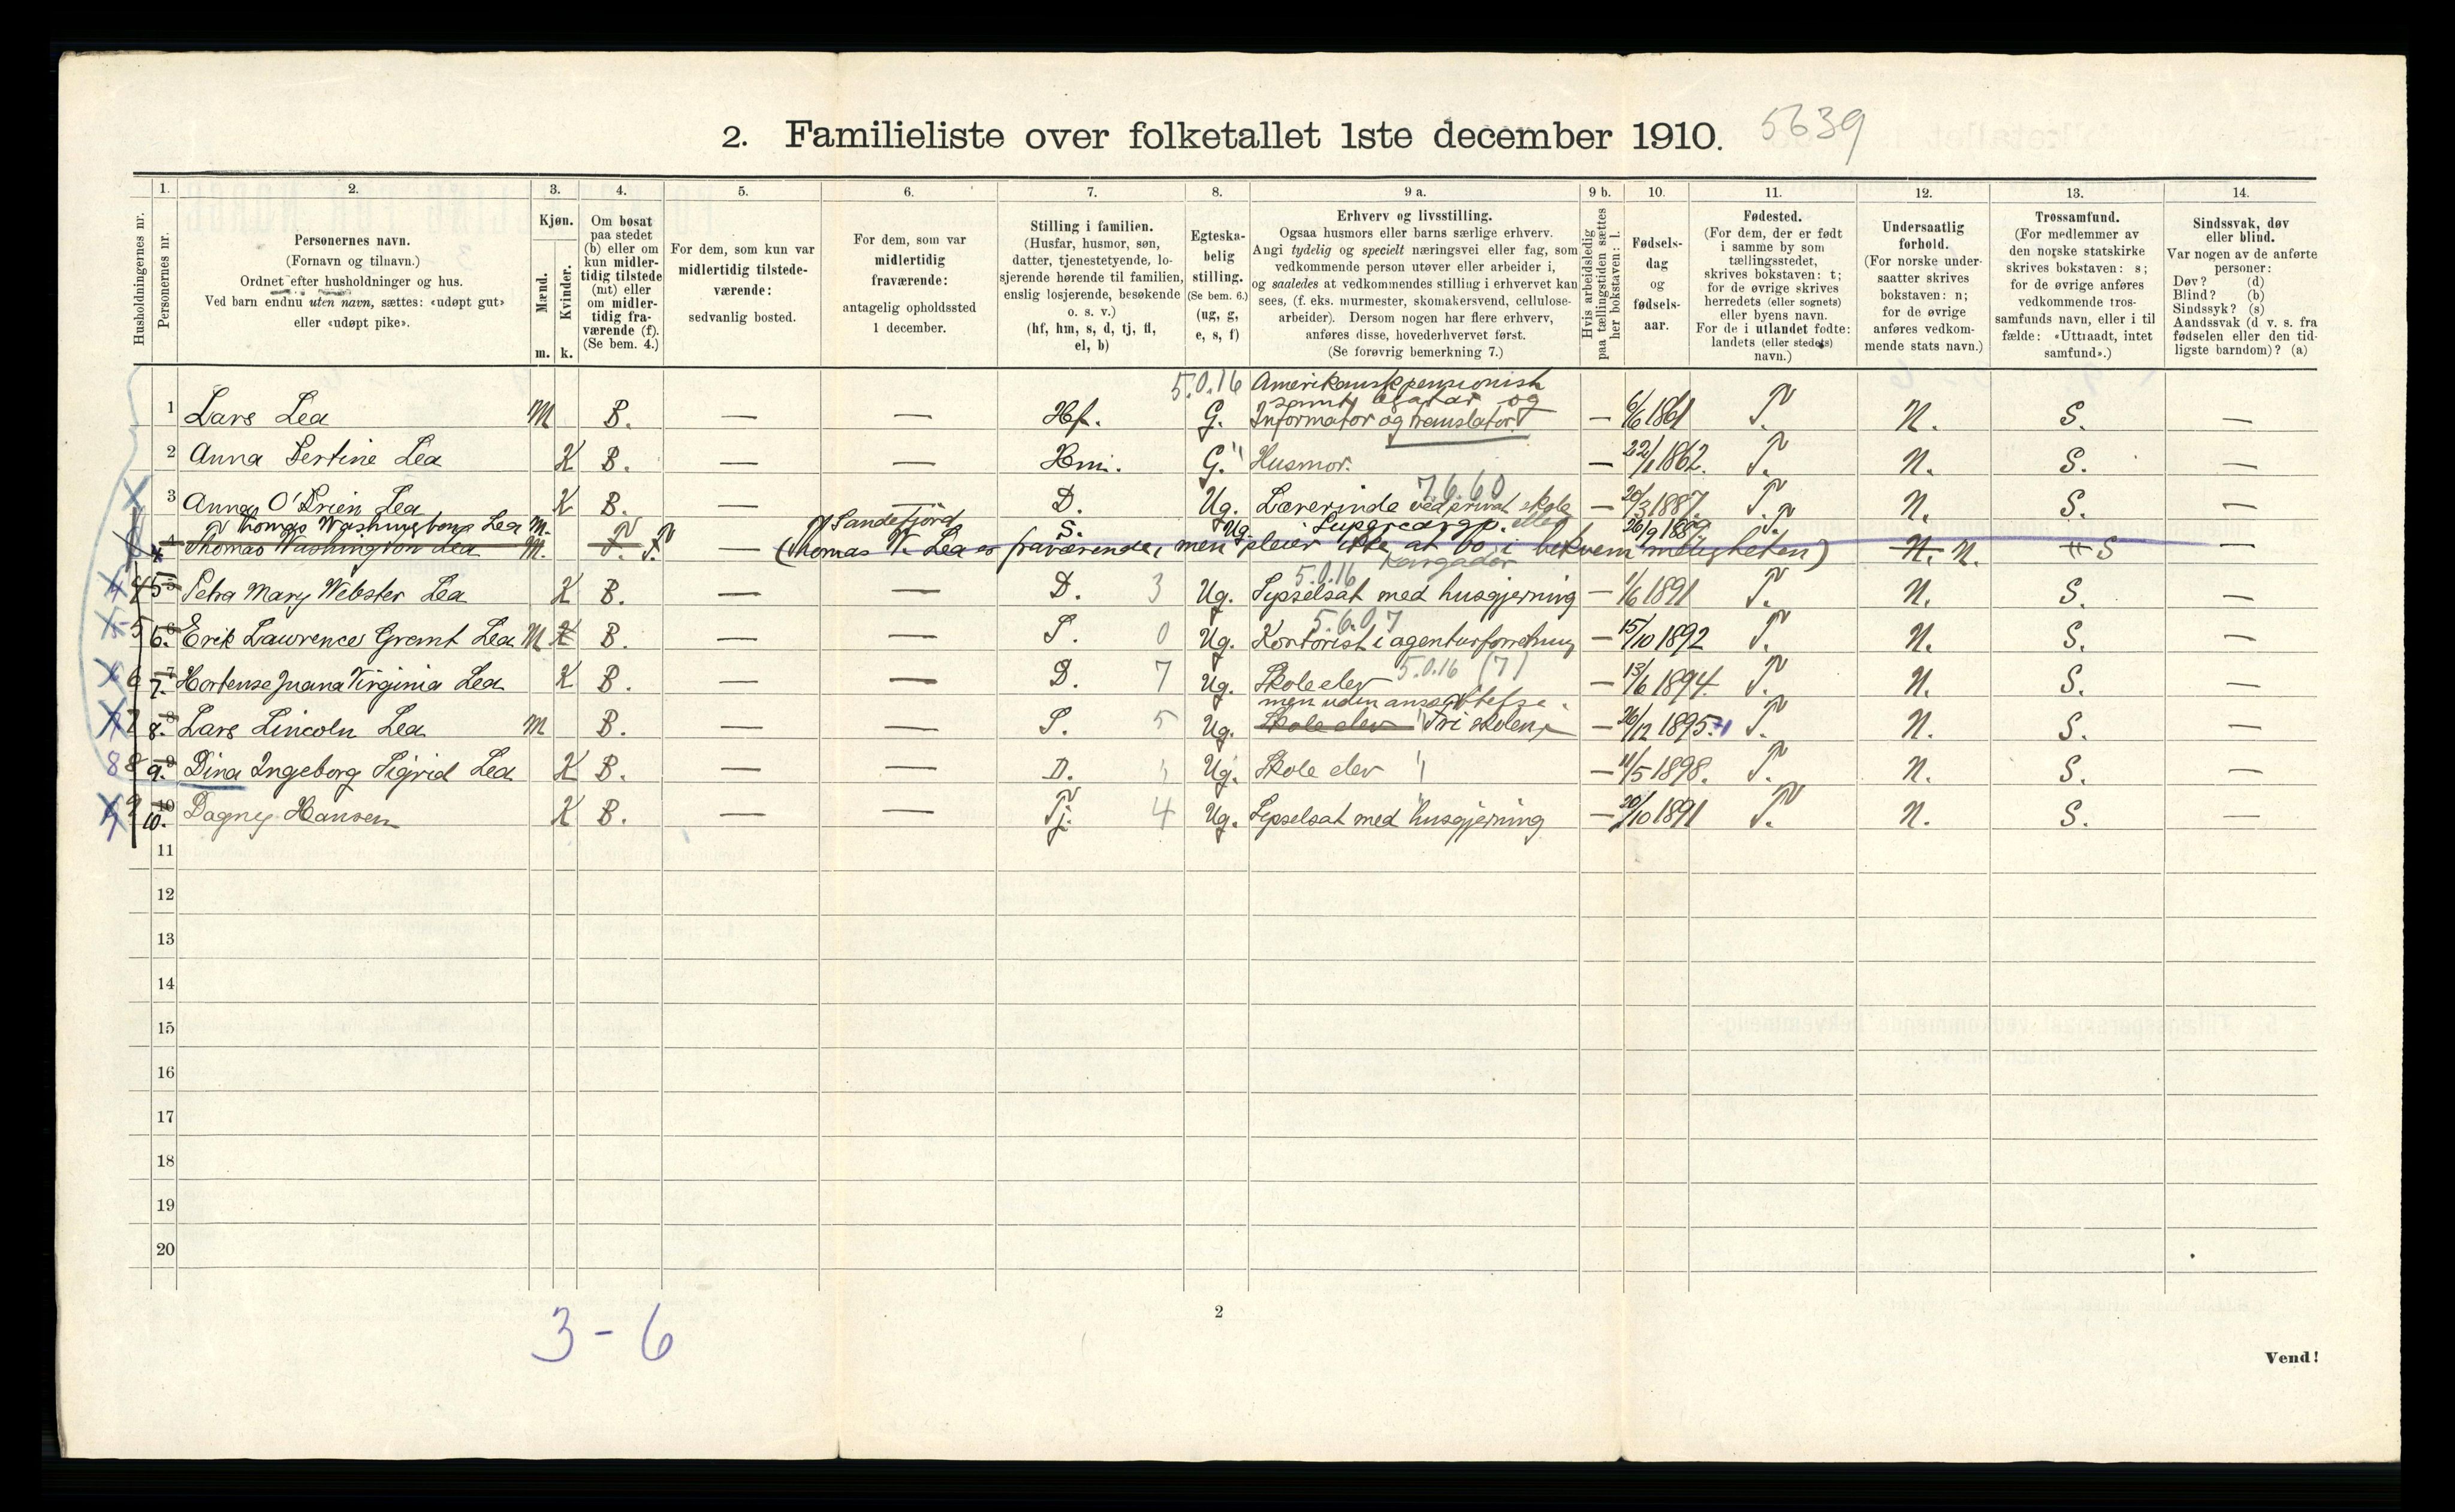 2. Familieliste over folketallet 1ste december 1910.
5639
Husholdningernes nr.
1.
Personernes nr.
2.
Personernes navn.
(Fornavn og tilnavn.)
Ordnet efter husholdninger og hus.
Ved barn endnu uten navn, sættes: «udøpt gut»
eller «udøpt pike».
3.
Kjøn.
Mænd.
Kvinder.
m. k.
4.
Om bosat
paa stedet
(b) eller om
kun midler-
tidig tilstede
(mt) eller
om midler-
tidig fra-
værende (f).
(Se bem. 4.)
5.
For dem, som kun var
midlertidig tilstede-
værende:
sedvanlig bosted.
6.
For dem, som var
midlertidig
fraværende:
antagelig opholdssted
1 december.
7.
Stilling i familien.
(Husfar, husmor, søn,
datter, tjenestetyende, lo-
sjerende hørende til familien,
enslig losjerende, besøkende
o. s. v.)
(hf, hm, s, d, tj, fl,
el, b)
8.
Egteska-
belig
stilling.
(Se bem. 6.)
(ug, g,
e, s, f)
9 a.
Erhverv og livsstilling.
Ogsaa husmors eller barns særlige erhverv.
Angi tydelig og specielt næringsvei eller fag, som
vedkommende person utøver eller arbeider i,
og saaledes at vedkommendes stilling i erhvervet kan
sees, (f. eks. murmester, skomakersvend, cellulose-
arbeider). Dersom nogen har flere erhverv,
anføres disse, hovederhvervet først.
(Se forøvrig bemerkning 7.)
9 b.
Hvis arbeidsledig
paa tællingstiden sættes
her bokstaven: l.
10.
Fødsels-
dag
og
fødsels-
aar.
11.
Fødested.
(For dem, der er født
i samme by som
tællingsstedet,
skrives bokstaven: t;
for de øvrige skrives
herredets (eller sognets)
eller byens navn.
For de i utlandet fødte:
landets (eller stedets)
navn.)
12.
Undersaatlig
forhold.
(For norske under-
saatter skrives
bokstaven: n;
for de øvrige
anføres vedkom-
mende stats navn.)
13.
Trossamfund.
(For medlemmer av
den norske statskirke
skrives bokstaven: s;
for de øvrige anføres
vedkommende tros-
samfunds navn, eller i til
fælde: «Uttraadt, intet
samfund».)
14.
Sindssvak, døv
eller blind.
Var nogen av de anførte
personer:
Døv? (d)
Blind? (b)
Sindssyk? (s)
Aandssvak (d. v. s. fra
fødselen eller den tid-
ligste barndom)? (a)
5.0.16 Amerikansk pensionist
1 Lars Lea M B. — — Hf. G. Informator og translatør — 6/6 1861 T. N. S. —
2 Anna Bertine Lea K B. — — Hm. G. Husmor. — 22/1 1862. T. N. S. —
7.6.60
3 Anna O'Brien Lea K B. — — D. Ug. Lærerinde ved privat skole — 20/3 1887. T. N. S. —
Thomas Washington Lea M. Sandefjord S. Ug. Supercargo. 26/9 1889 T.
4 Thomas Washington Lea M. F. F. — (Thomas W. Lea er fraværende, men pleier ikke at bo i bekvemmeligheten) N. N. S —
5.0.16 Kargador
4 5 Petra Mary Webster Lea K B. — — D. 3 Ug. Sysselsat med husgjerning — 1/6 1891 T. N. S. —
5.6.07
5 6. Erik Lawrence Grant Lea M K B. — — S. 0 Ug. Kontorist i agenturforretning — 15/10 1892 T. N. S. —
5.0.16 (7)
6 7. Hortense Juana Virginia Lea K B. — — D. 7 Ug. Skoleelev — 13/6 1894 T. N. S. —
men uden ansættelse.
7 8. Lars Lincoln Lea M B. — — S. 5 Ug. Skoleelev Fri skolen — 26/12 1895. T. N. S. —
8 8 9. Dina Ingeborg Sigrid Lea K B. — — D. Ug. Skoleelev — 11/5 1898. T. N. S. —
9 10. Dagny Hansen K B. — — Tj. 4 Ug. Sysselsat med husgjerning — 20/10 1891 T. N. S. —
11
12
13
14
15
16
17
18
19
20
3 - 6
2
Vend!